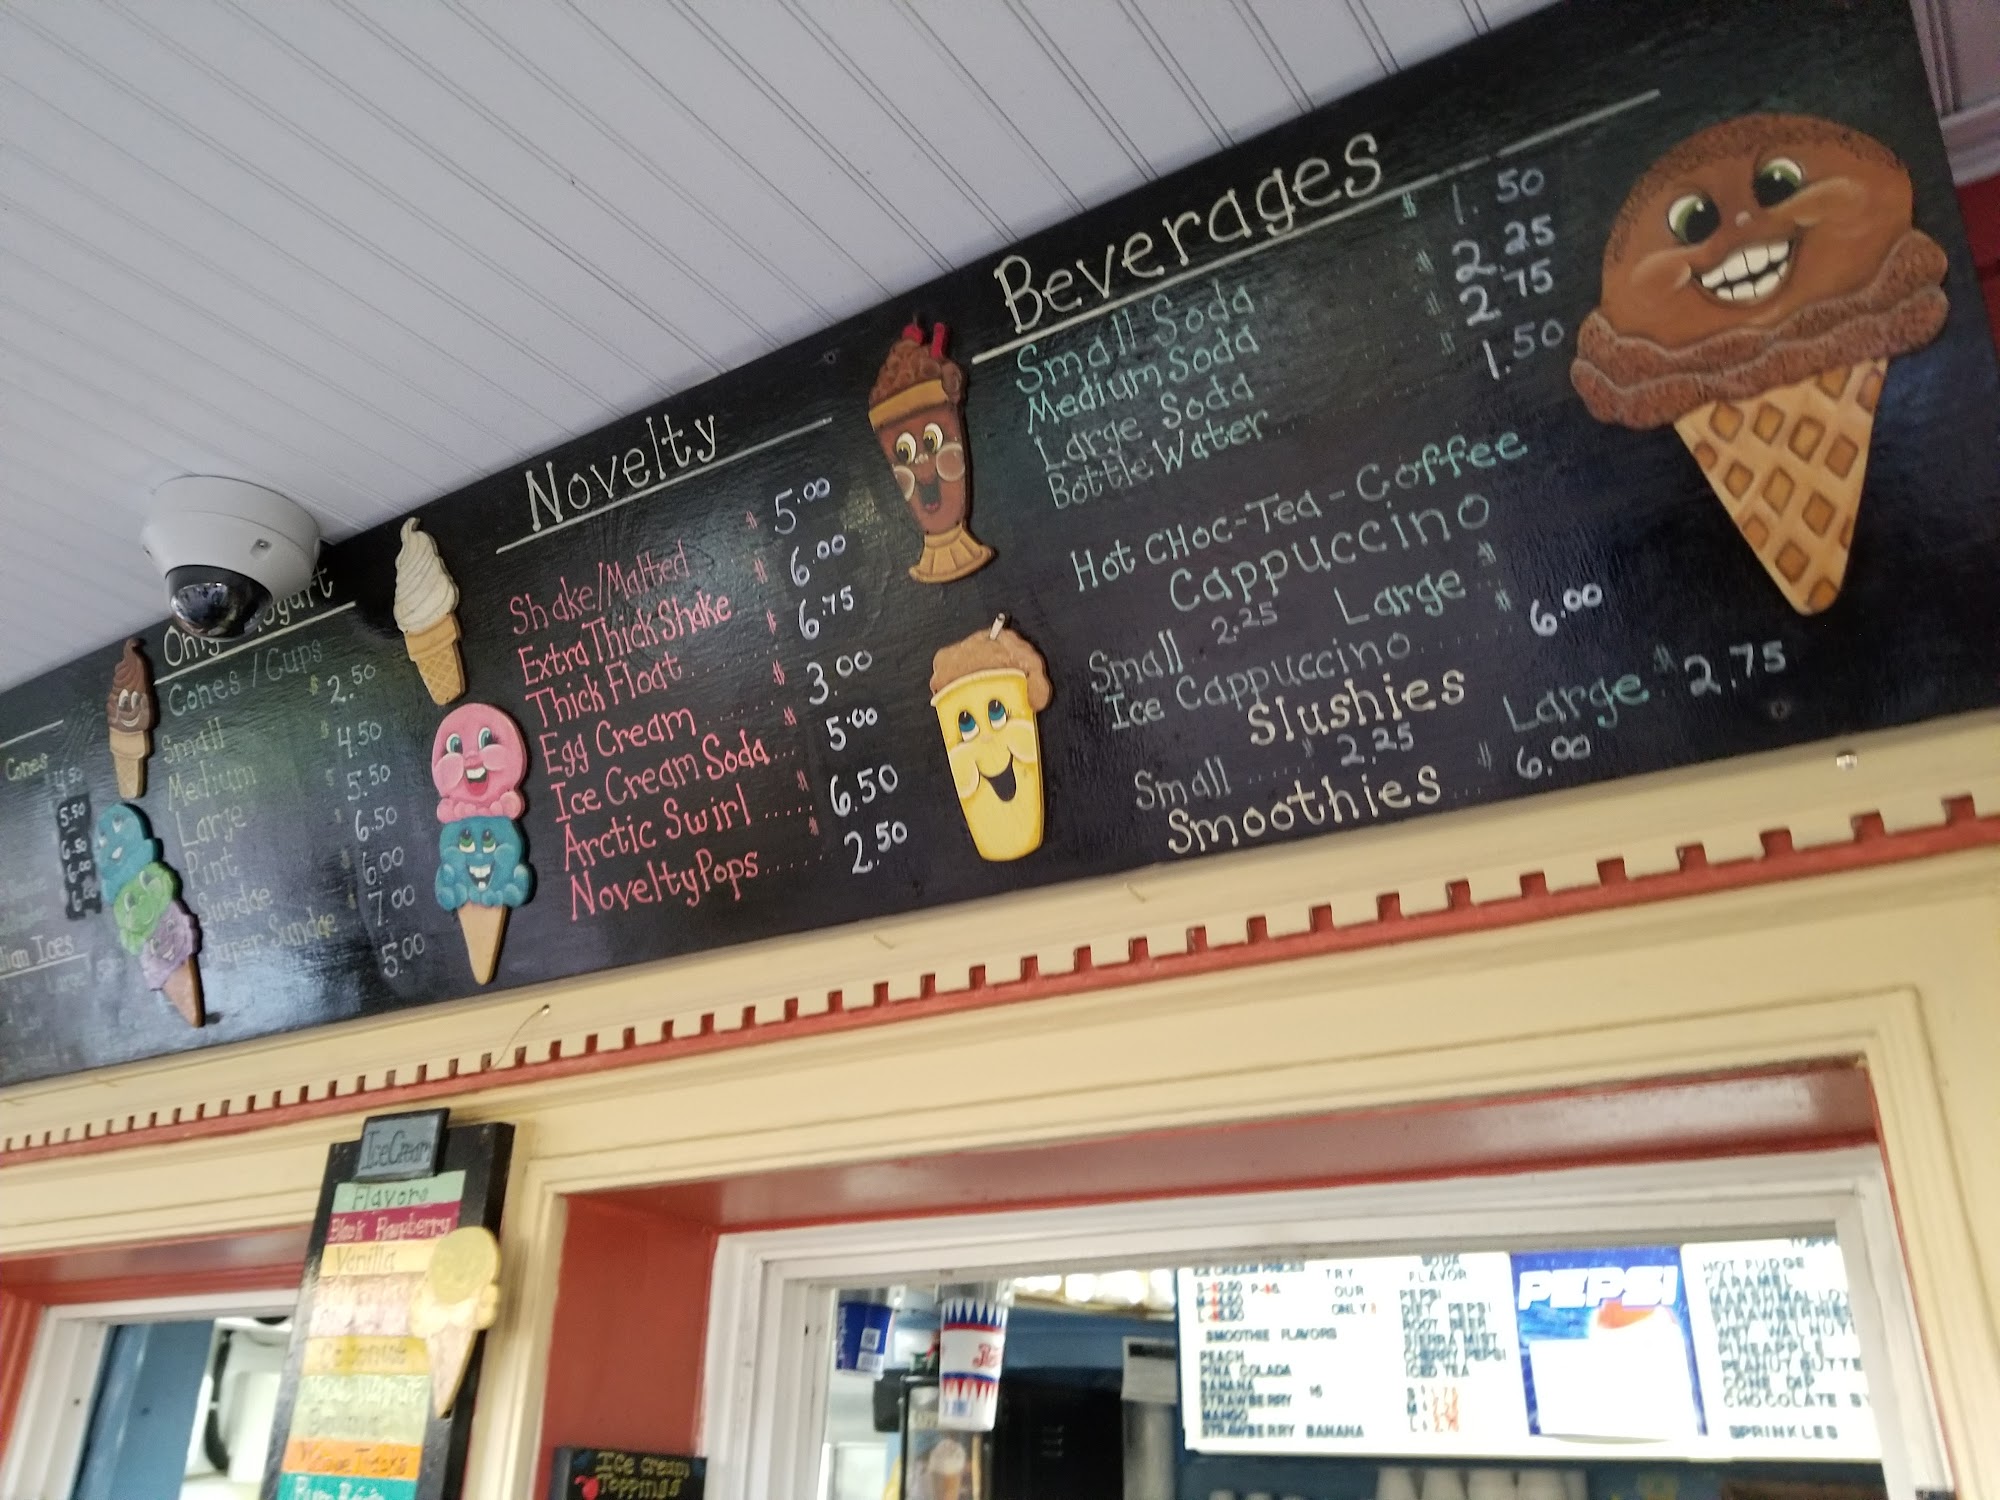 Cones
4.50
5.50
6.50
6.00
Ices
Only
Cones / Cups
Small $ 2.50
Medium $ 4.50
Large $ 5.50
Pint 6.50
Sundae 6.00
Super Sundae 7.00
5.00
Novelty
Shake/Malted $ 5.00
Extra Thick Shake $ 6.00
Thick Float $ 6.75
Egg Cream $ 3.00
Ice Cream Soda $ 5.00
Arctic Swirl $ 6.50
Novelty Pops $ 2.50
Beverages
Small Soda $ 1.50
Medium Soda $ 2.25
Large Soda $ 2.75
Bottle Water $ 1.50
Hot CHoc-Tea-Coffee
Cappuccino
Small 2.25 Large $
Ice Cappuccino $ 6.00
Slushies
Small $ 2.25 Large $ 2.75
Smoothies $ 6.00
Ice Cream
Flavors
Black Raspberry
Vanilla
Ice Cream
Toppings
ICE CREAM PRICES
TRY
OUR
ONLY
SMOOTHIE FLAVORS
PEACH
PINA COLADA
BANANA
STRAWBERRY
MANGO
STRAWBERRY BANANA
SODA
FLAVOR
PEPSI
DIET PEPSI
ROOT BEER
SIERRA MIST
CHERRY PEPSI
ICED TEA
PEPSI
HOT FUDGE
CARAMEL
PINEAPPLE
CONE DIP
CHOCOLATE
SPRINKLES